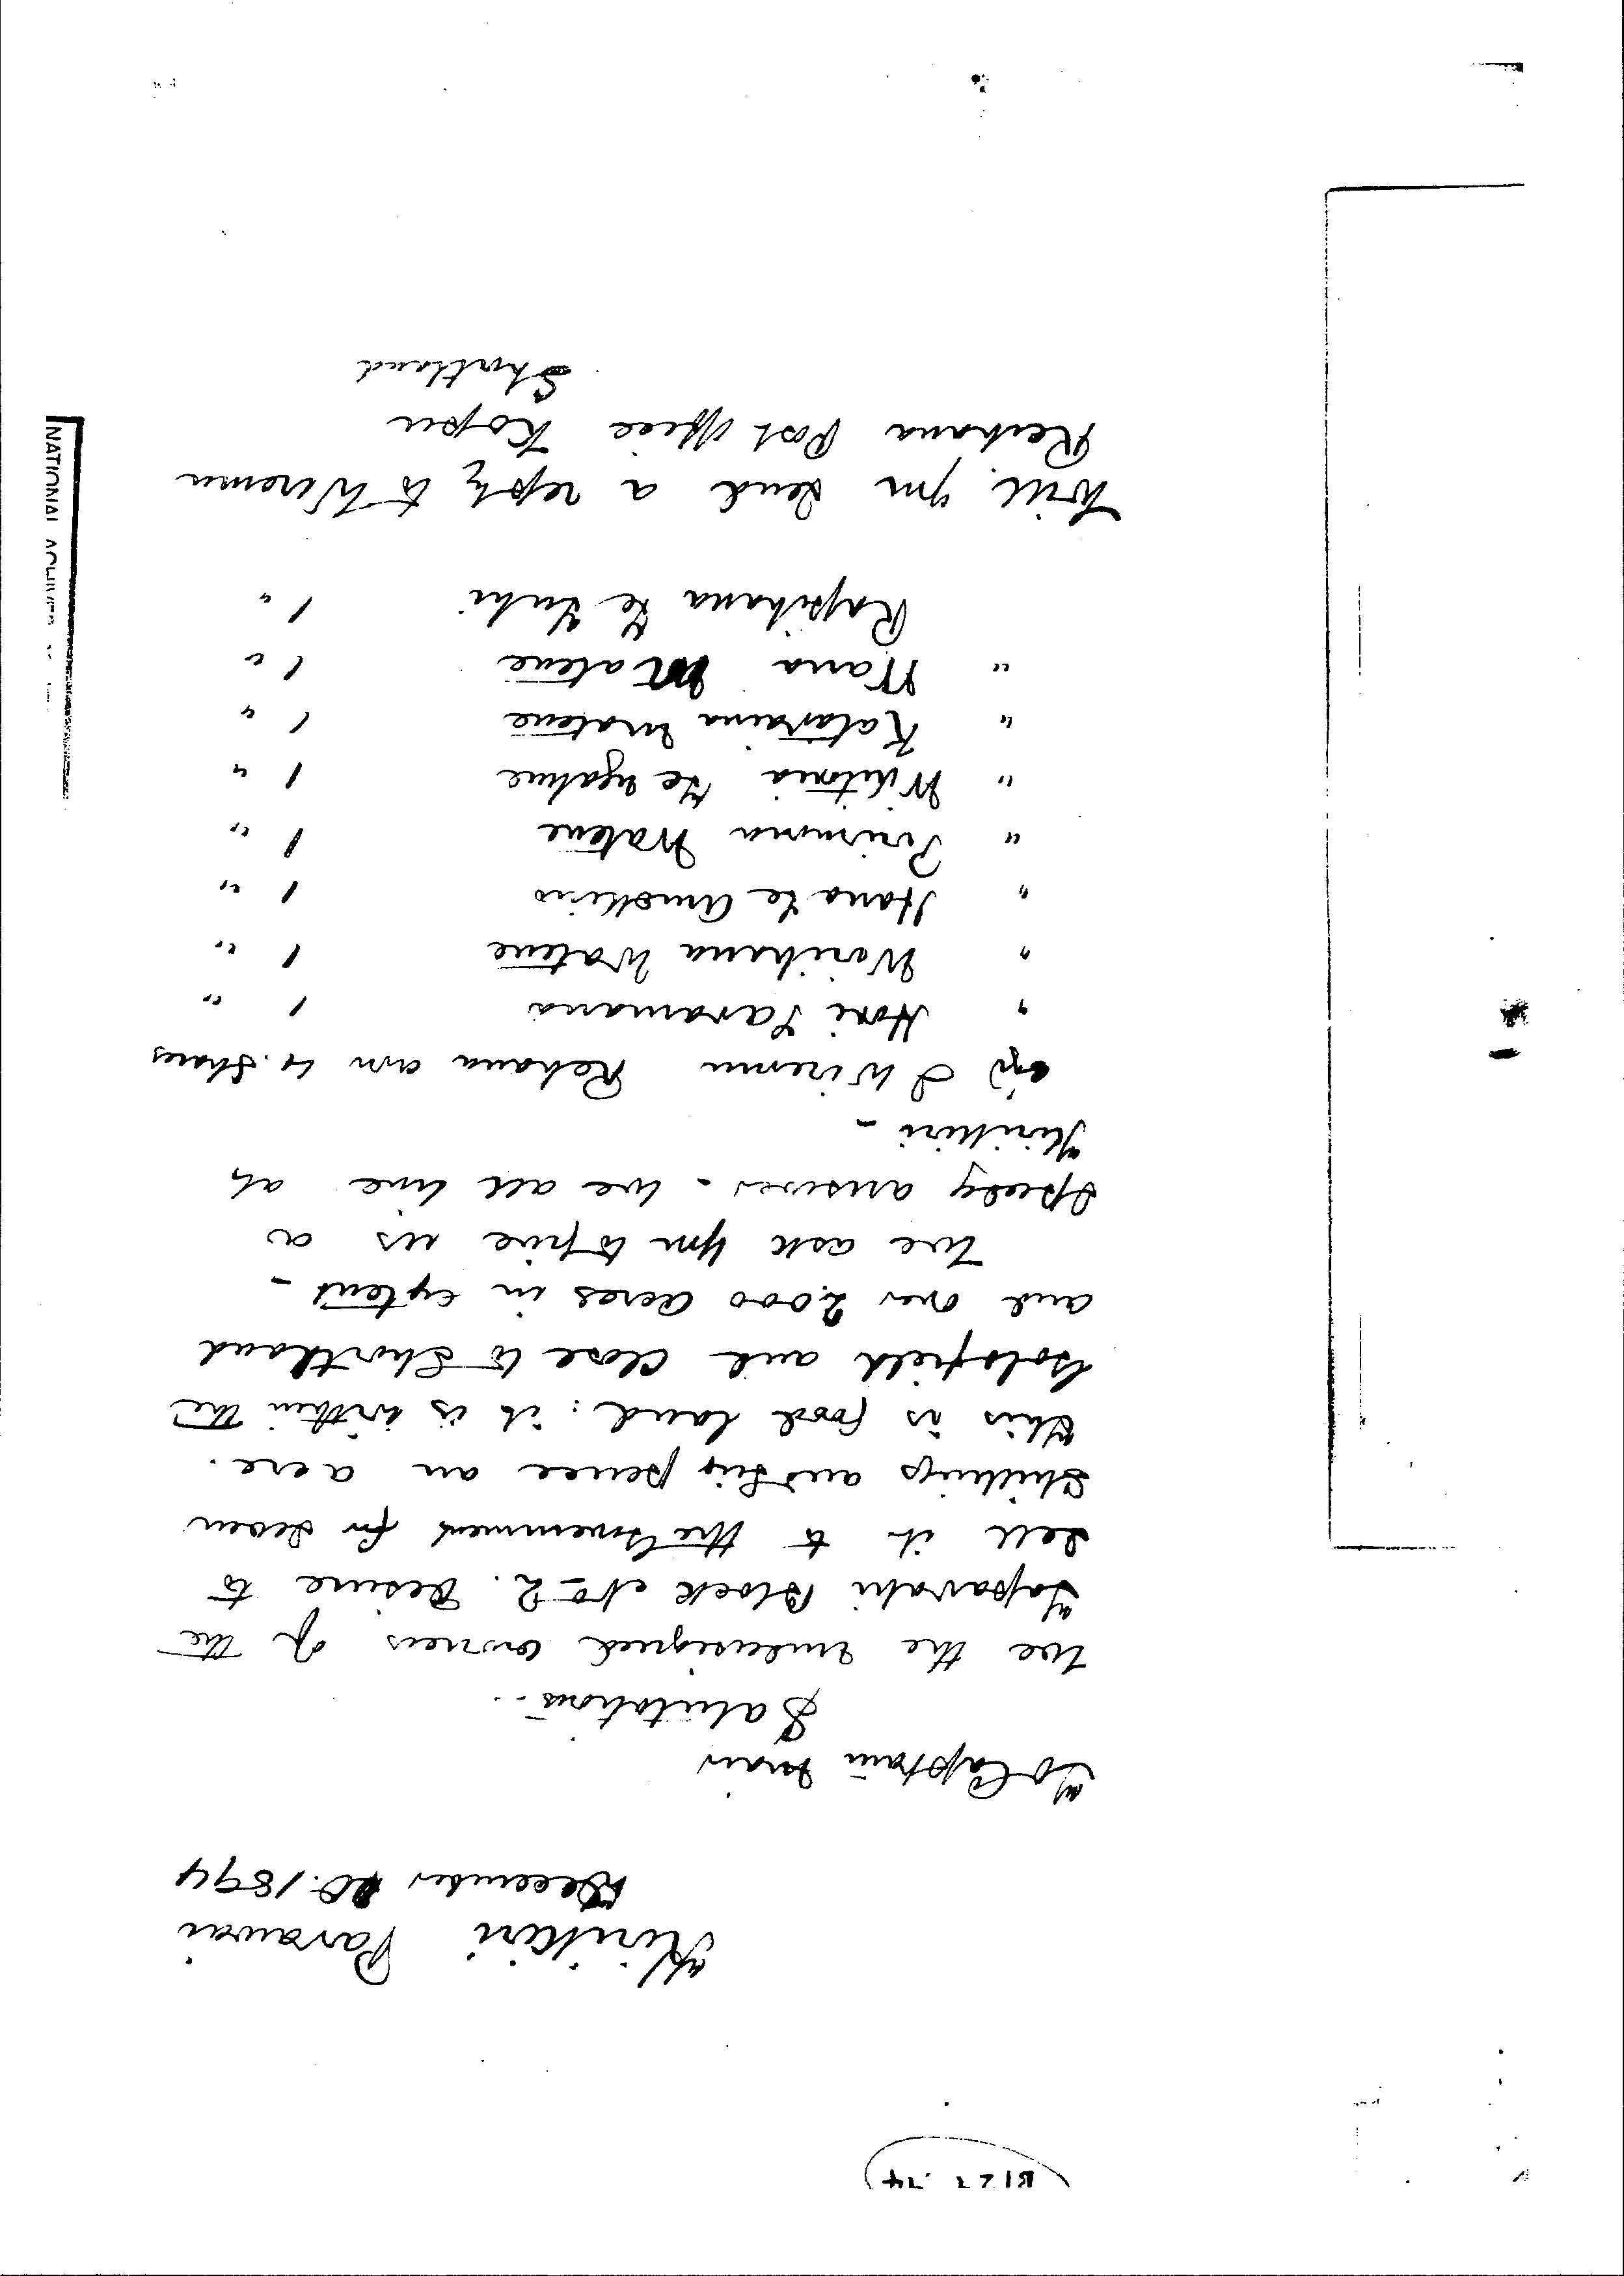 Kirikiri Parawai
December 20. 1894
To Captain Mair
Salutations -
We the undersigned owners of the
Taparahi Block No 2. desire to
sell it to the Government for seven
shillings and six pence an acre.
This is good land: it is within the
Goldfield and close to Shortland
and over 2,000 acres in extent -
We ask you to give us a
speedy answer - We all live at
Kirikiri -
I Wiremu Rehana own 4. shares
" Hori Taramana 1 "
" Warihana Watene 1 "
" Hana te Amohiro 1 "
" Pirimona Watene 1 "
" Wikitoria te Ngahue 1 "
" Katarina Watene 1 "
" Watene 1 "
Rapihana te Tuhi 1 "
Will you send a reply to Wiremu
Reihana Post Office Kopu
Shortland
NATIONAL